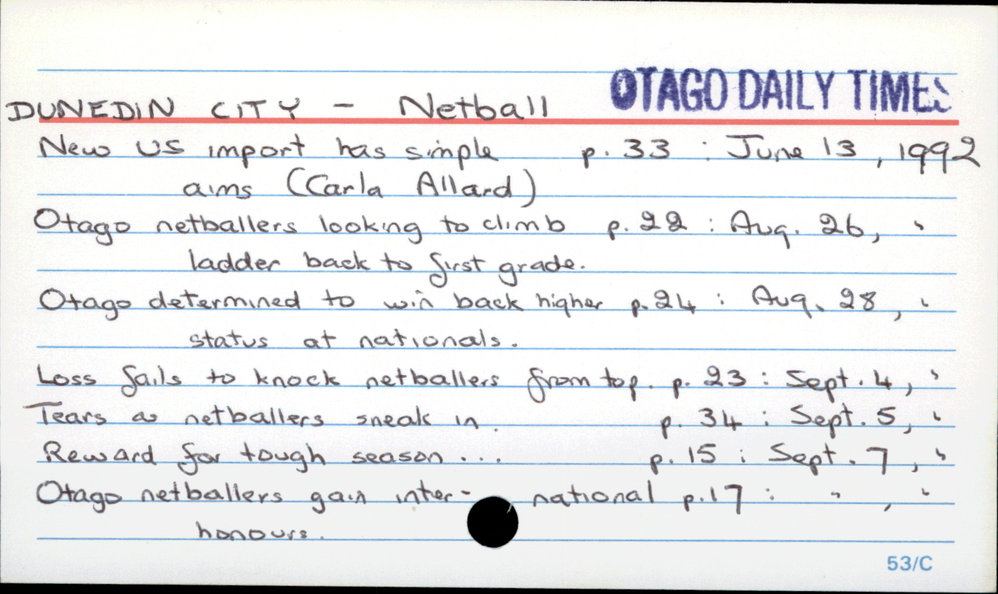 OTAGO DAILY TIMES
DUNEDIN CITY - Netball
New US import has simple p. 33 : June 13, 1992
aims (Carla Allard)
Otago netballers looking to climb p. 22 : Aug. 26, "
ladder back to first grade.
Otago determined to win back higher p. 24 : Aug. 28, "
status at nationals.
Loss fails to knock netballers from top. p. 23 : Sept. 4, "
Tears as netballers sneak in. p. 34 : Sept. 5, "
Reward for tough season ... p. 15 : Sept. 7, "
Otago netballers gain inter- national p. 17 : " , "
honours.
53/C